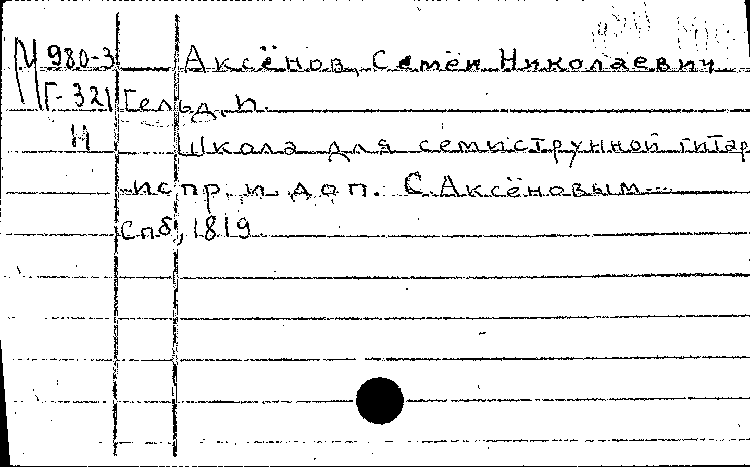 М 980-3 Аксёнов, Семён Николаевич
Г-321 Гельд, И.
Н Школа для семиструнной гитар
испр. и доп. С. Аксёновым...
Спб, 1819